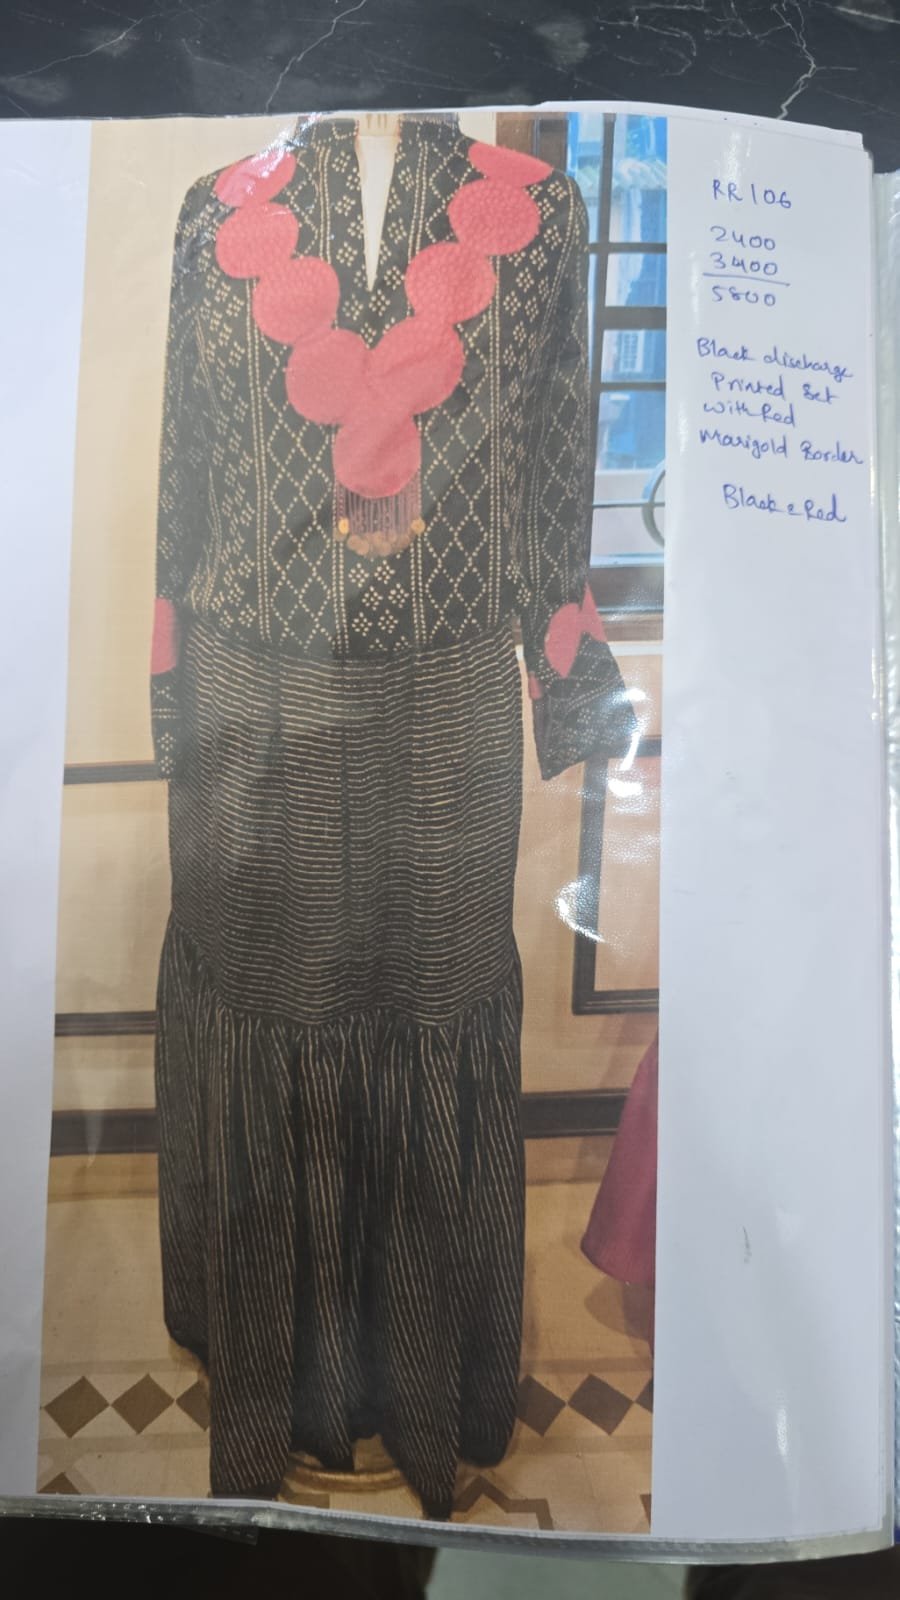 RR106
2400
3400
5800
Black discharge
Printed Set
with Red
Marigold Border
Black & Red